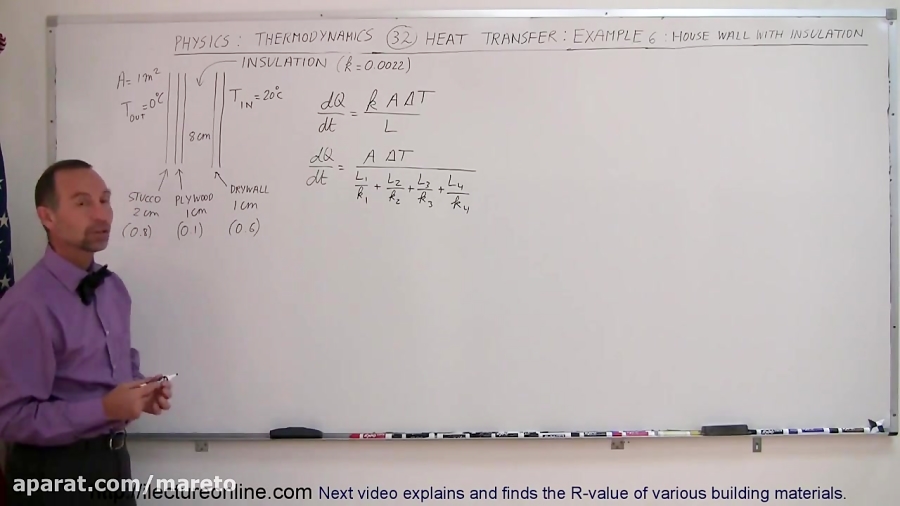 PHYSICS: THERMODYNAMICS 32 HEAT TRANSFER: EXAMPLE 6: HOUSE WALL WITH INSULATION
INSULATION (k=0.0022)
A=1m²
T_OUT=0°C
T_IN=20°C
8cm
STUCCO
2cm
(0.8)
PLYWOOD
1cm
(0.1)
DRYWALL
1cm
(0.6)
dQ/dt = k A ΔT / L
dQ/dt = A ΔT / (L₁/k₁ + L₂/k₂ + L₃/k₃ + L₄/k₄)
aparat.com/mareto
http://ilectureonline.com Next video explains and finds the R-value of various building materials.